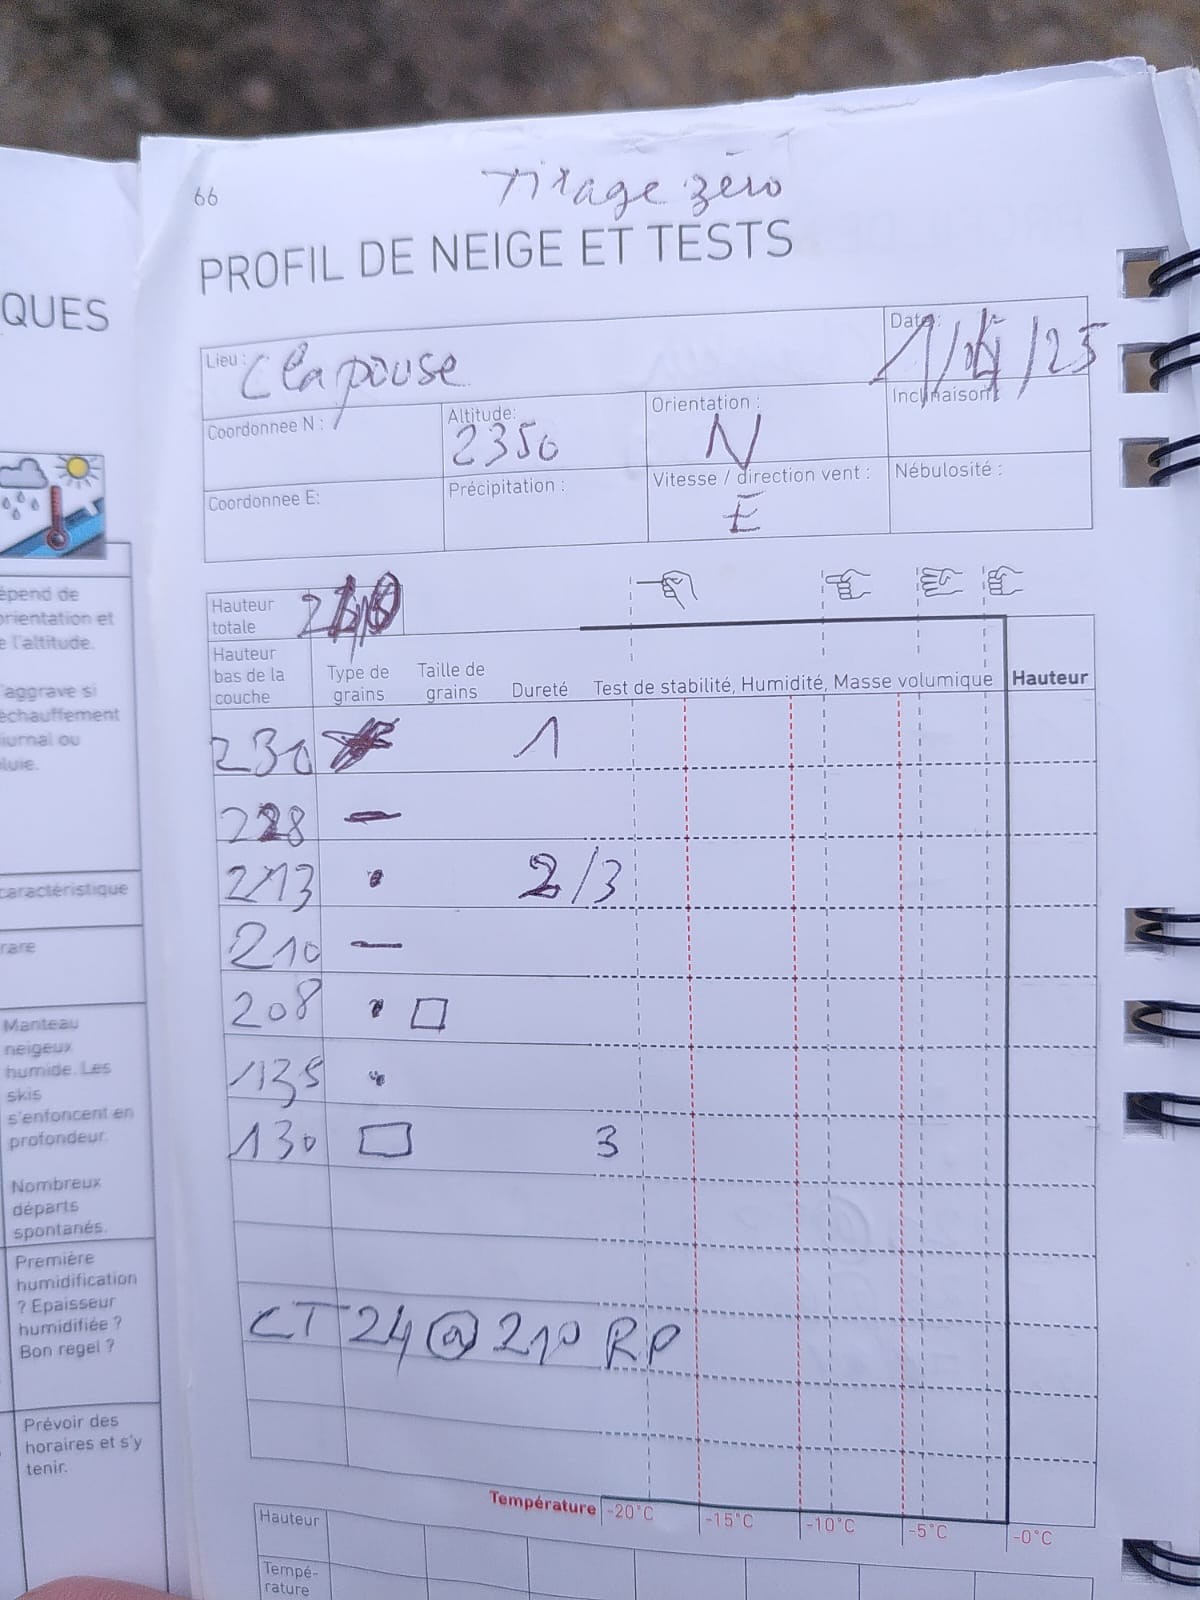 66
Tirage zéro
PROFIL DE NEIGE ET TESTS
QUES
Lieu : Clapouse
Date:
Coordonnee N :
Altitude: 2350
Orientation : N
Inclinaison
Coordonnee E:
Précipitation :
Vitesse / direction vent : E
Nébulosité :
épend de
orientation et
e l'altitude.
'aggrave si
échauffement
iurnal ou
luie.
caractéristique
rare
Manteau
neigeux
humide. Les
skis
s'enfoncent en
profondeur.
Nombreux
départs
spontanés.
Première
humidification
? Epaisseur
humidifiée ?
Bon regel ?
Prévoir des
horaires et s'y
tenir.
Hauteur
totale
Hauteur
bas de la
couche
Type de
grains
Taille de
grains
Dureté
Test de stabilité, Humidité, Masse volumique
Hauteur
230 1
228 —
213 2/3
210 —
208 □
135
130 □ 3
CT 24 @ 210 RP
Température -20°C -15°C -10°C -5°C -0°C
Hauteur
Tempé-
rature